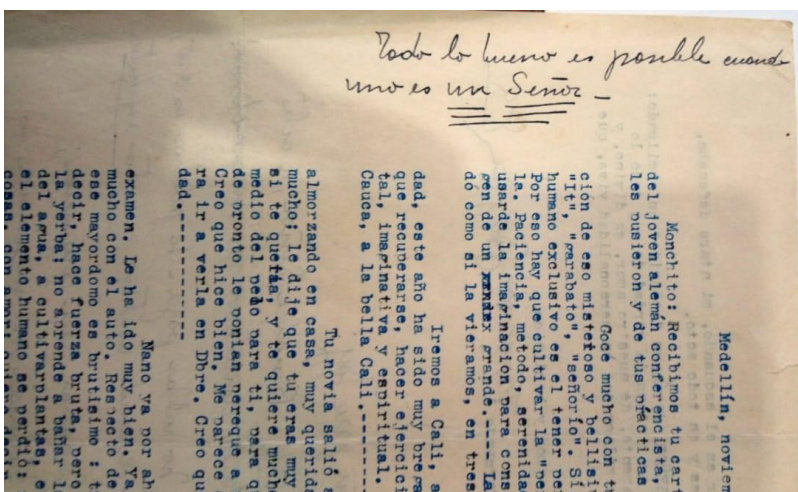 Todo lo bueno es posible cuando
uno es un Señor -
Medellín, novie
Monchito: Recibimos tu cart
del joven alemán conferencista,
les pusieron y de tus prácticas
Goce mucho con tu
ción de eso misterioso y bellisi
"It", "garabato", "señorío". Sí
humano exclusivo es el tener pe
Por eso hay que cultivar la "pe
la. Paciencia, metodo, serenida
usarde la imaginacion para cons
gen de un granda.---- La
dó como si la vieramos, en tres
Iremos a Cali, a
dad, este año ha sido muy brega
que recuperarse, hacer ejercici
tal, imaginativa y espiritual.
Cauca, a la bella Cali.--------
Tu novia salió a
almorzando en casa, muy querida
mucho; le dije que tu eras muy
si te quería, y te quiere mucho
medio del para ti, para qu
de pronto le ponian pereque a
Creo que hice bien. Me parece
ra ir a verla en Dbre. Creo qu
dad.------------
Nano va por ah
examen. Le ha ido muy bien. Ya
mucho con el auto. Respecto de
ese mayordomo es brutísimo : t
decir, hace fuerza bruta, pero
la yerba; no aprende a bañar l
del agua, a cultivarplantas, e
el elemento humano se perdió:
cosas, con amor; quiero decir